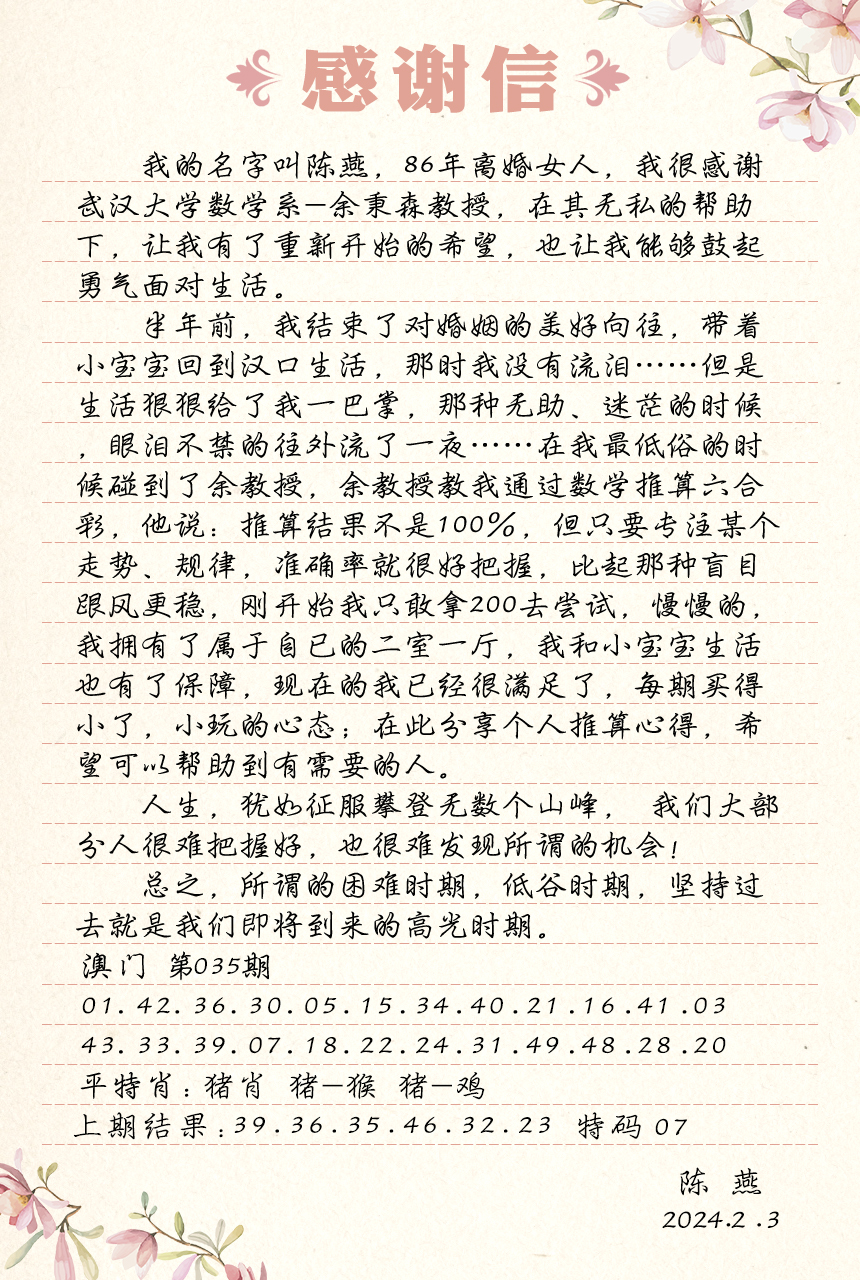 感谢信
我的名字叫陈燕，86年离婚女人，我很感谢
武汉大学数学系—余秉森教授，在其无私的帮助
下，让我有了重新开始的希望，也让我能够鼓起
勇气面对生活。
半年前，我结束了对婚姻的美好向往，带着
小宝宝回到汉口生活，那时我没有流泪……但是
生活狠狠给了我一巴掌，那种无助、迷茫的时候
，眼泪不禁的往外流了一夜……在我最低俗的时
候碰到了余教授，余教授教我通过数学推算六合
彩，他说：推算结果不是100%，但只要专注某个
走势、规律，准确率就很好把握，比起那种盲目
跟风更稳，刚开始我只敢拿200去尝试，慢慢的，
我拥有了属于自已的二室一厅，我和小宝宝生活
也有了保障，现在的我已经很满足了，每期买得
小了，小玩的心态；在此分享个人推算心得，希
望可以帮助到有需要的人。
人生，犹如征服攀登无数个山峰， 我们大部
分人很难把握好，也很难发现所谓的机会！
总之，所谓的困难时期，低谷时期，坚持过
去就是我们即将到来的高光时期。
澳门 第035期
01.42.36.30.05.15.34.40.21.16.41.03
43.33.39.07.18.22.24.31.49.48.28.20
平特肖：猪肖 猪—猴 猪—鸡
上期结果：39.36.35.46.32.23 特码 07
陈 燕
2024.2.3